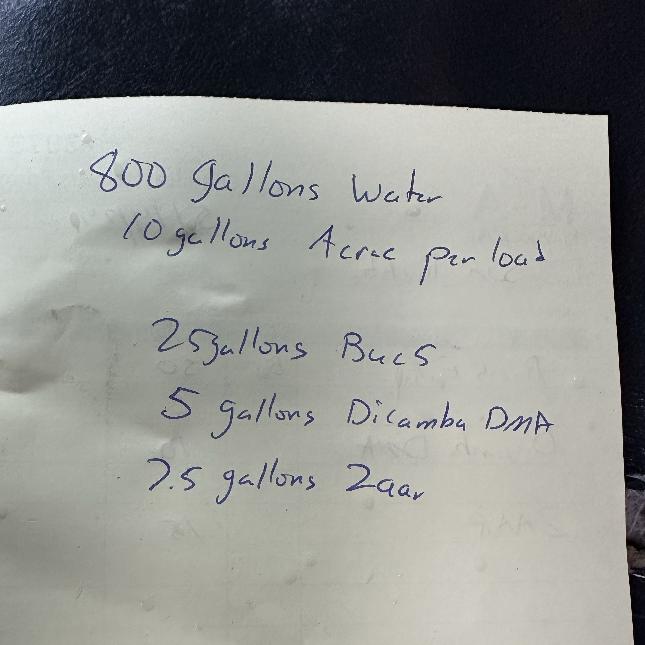 800 gallons Water
10 gallons Acrae per load
25 gallons Buc5
5 gallons Dicamba DMA
7.5 gallons Zaar